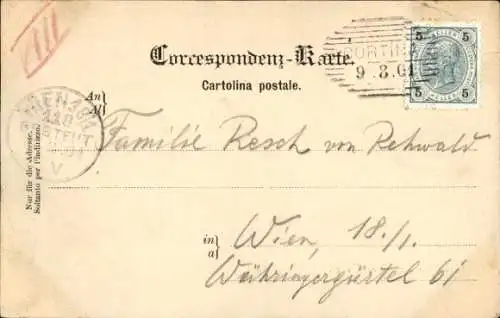 Correspondenz-Karte.
Cartolina postale.
CORTINA
9.8.01
5 5
5 5
An
Al
Familie Resch von Rehwald
in
a
Wien, 18/1.
Währingergürtel 61
Nur für die Adresse.
Soltanto per l'indirizzo.
V